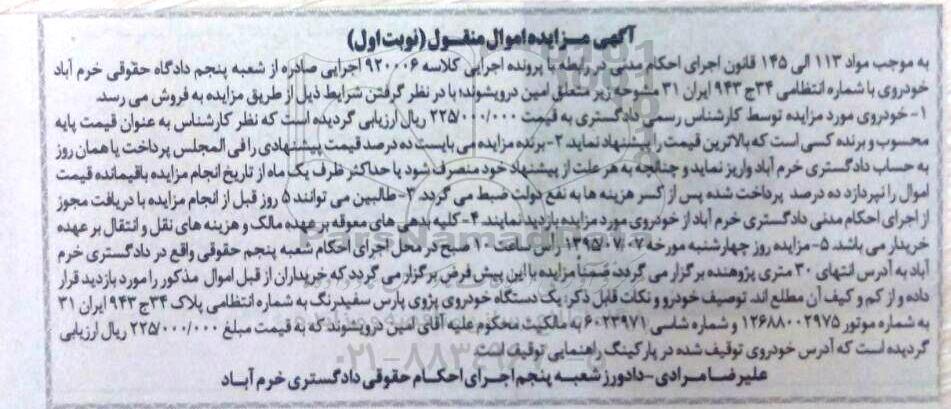 آگهی مزایده اموال منقول (نوبت اول)
به موجب مواد ۱۱۳ الی ۱۴۵ قانون اجرای احکام مدنی در رابطه با پرونده اجرایی کلاسه ۹۲۰۰۰۶ اجرایی صادره از شعبه پنجم دادگاه حقوقی خرم آباد
خودروی با شماره انتظامی ۳۴ج۹۴۳ ایران ۳۱ مشروحه زیر متعلق امین درویشوند؛ با در نظر گرفتن شرایط ذیل از طریق مزایده به فروش می رسد.
۱- خودروی مورد مزایده توسط کارشناس رسمی دادگستری به قیمت ۲۲۵/۰۰۰/۰۰۰ ریال ارزیابی گردیده است که نظر کارشناس به عنوان قیمت پایه
محسوب و برنده کسی است که بالاترین قیمت را پیشنهاد نماید. ۲- برنده مزایده می بایست ده درصد قیمت پیشنهادی را فی المجلس پرداخت یا همان روز
به حساب دادگستری خرم آباد واریز نماید و چنانچه به هر علت از پیشنهاد خود منصرف شود یا حداکثر ظرف یک ماه از تاریخ انجام مزایده باقیمانده قیمت
اموال را نپردازد ده درصد پرداخت شده پس از کسر هزینه ها به نفع دولت ضبط می گردد. ۳- طالبین می توانند ۵ روز قبل از انجام مزایده با دریافت مجوز
از اجرای احکام مدنی دادگستری خرم آباد از خودروی مورد مزایده بازدید نمایند. ۴- کلیه بدهی های معوقه بر عهده مالک و هزینه های نقل و انتقال بر عهده
خریدار می باشد. ۵- مزایده روز چهارشنبه مورخه ۱۳۹۵/۰۷/۰۷ راس ساعت ۱۰ صبح در محل اجرای احکام شعبه پنجم حقوقی واقع در دادگستری خرم
آباد به آدرس انتهای ۳۰ متری پژوهنده برگزار می گردد. ضمناً مزایده با این پیش فرض برگزار می گردد که خریداران از قبل اموال مذکور را مورد بازدید قرار
داده و از کم و کیف آن مطلع اند. توصیف خودرو و نکات قابل ذکر: یک دستگاه خودروی پژوی پارس سفیدرنگ به شماره انتظامی پلاک ۳۴ج۹۴۳ ایران ۳۱
به شماره موتور ۱۲۶۸۸۰۰۲۹۷۵ و شماره شاسی ۶۰۲۳۹۷۱ به مالکیت محکوم علیه آقای امین درویشوند که به قیمت مبلغ ۲۲۵/۰۰۰/۰۰۰ ریال ارزیابی
گردیده است که آدرس خودروی توقیف شده در پارکینگ راهنمایی توقیف است.
علیرضا مرادی-دادورز شعبه پنجم اجرای احکام حقوقی دادگستری خرم آباد